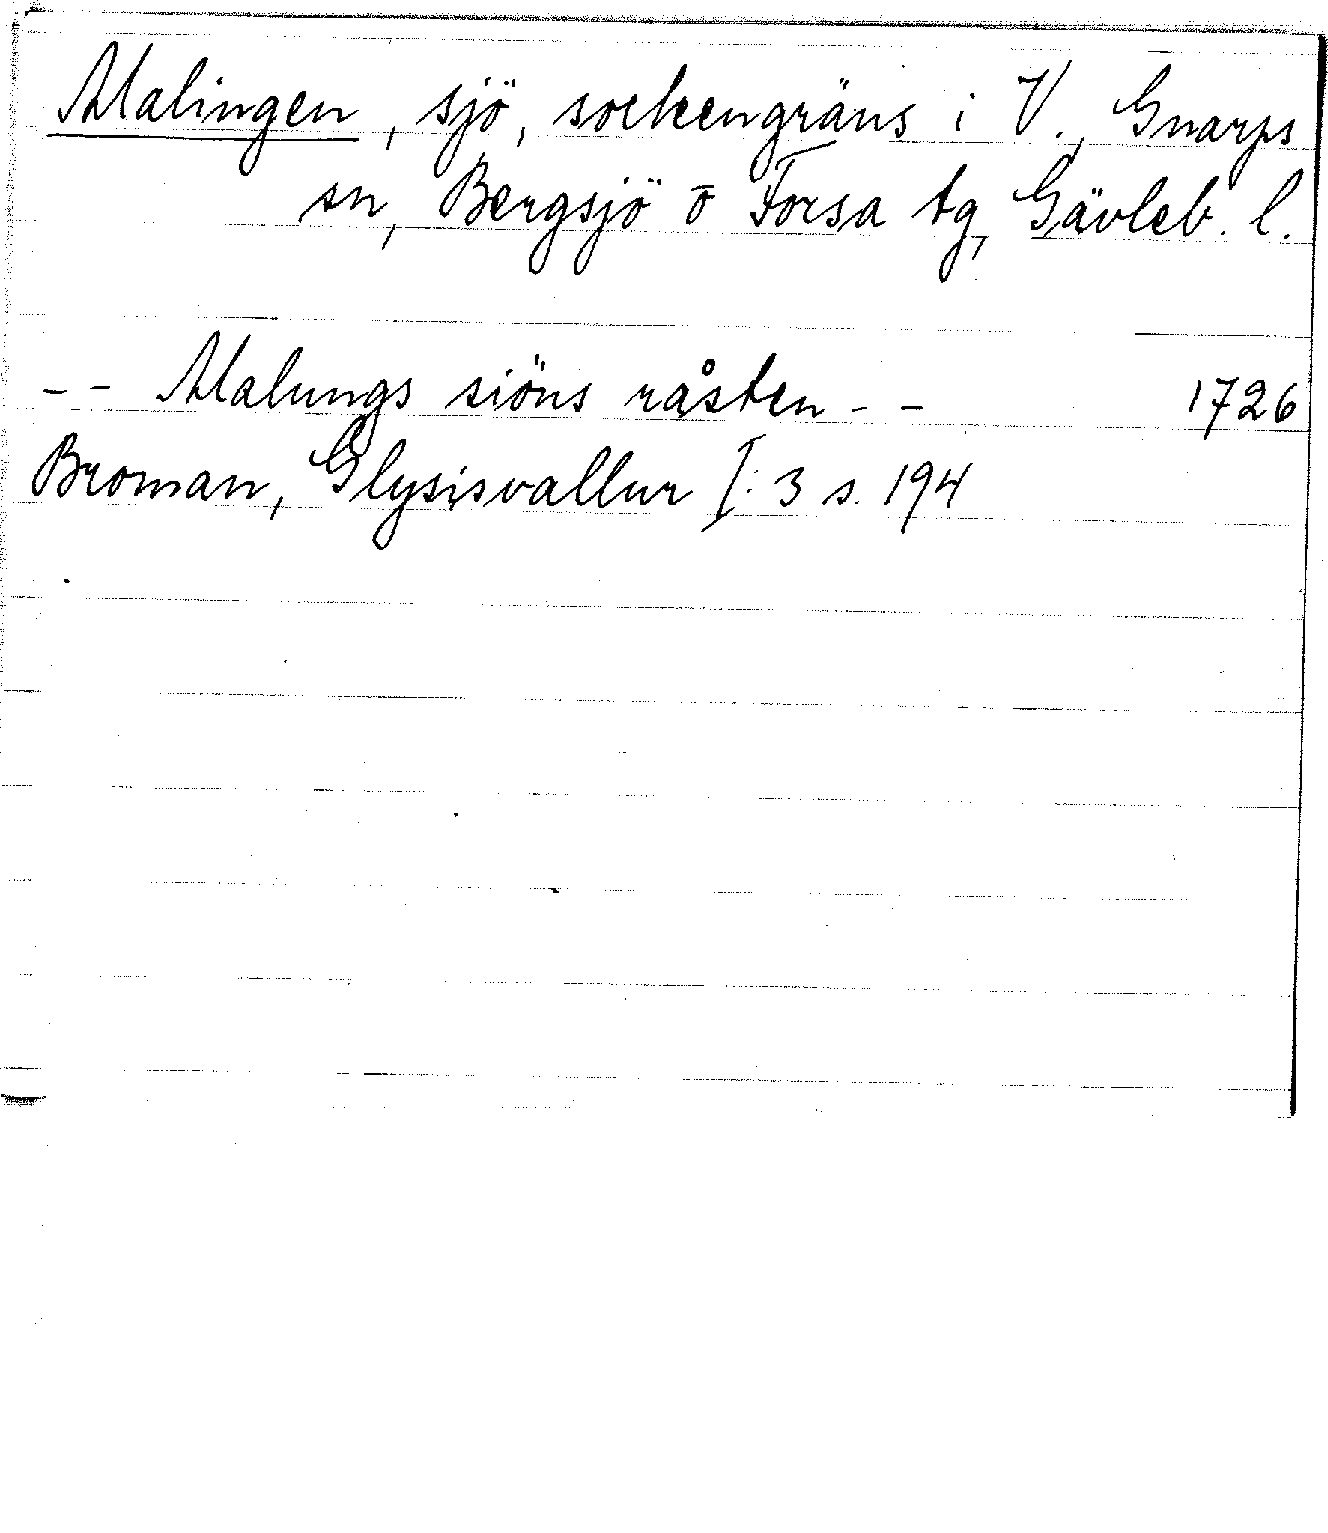 Malingen, sjö, sockengräns i V., Gnarps
sn, Bergsjö o Forsa tg, Gävleb. l.
-- Malungs siöns råsten -- 1726
Broman, Glysisvallur I: 3 s. 194